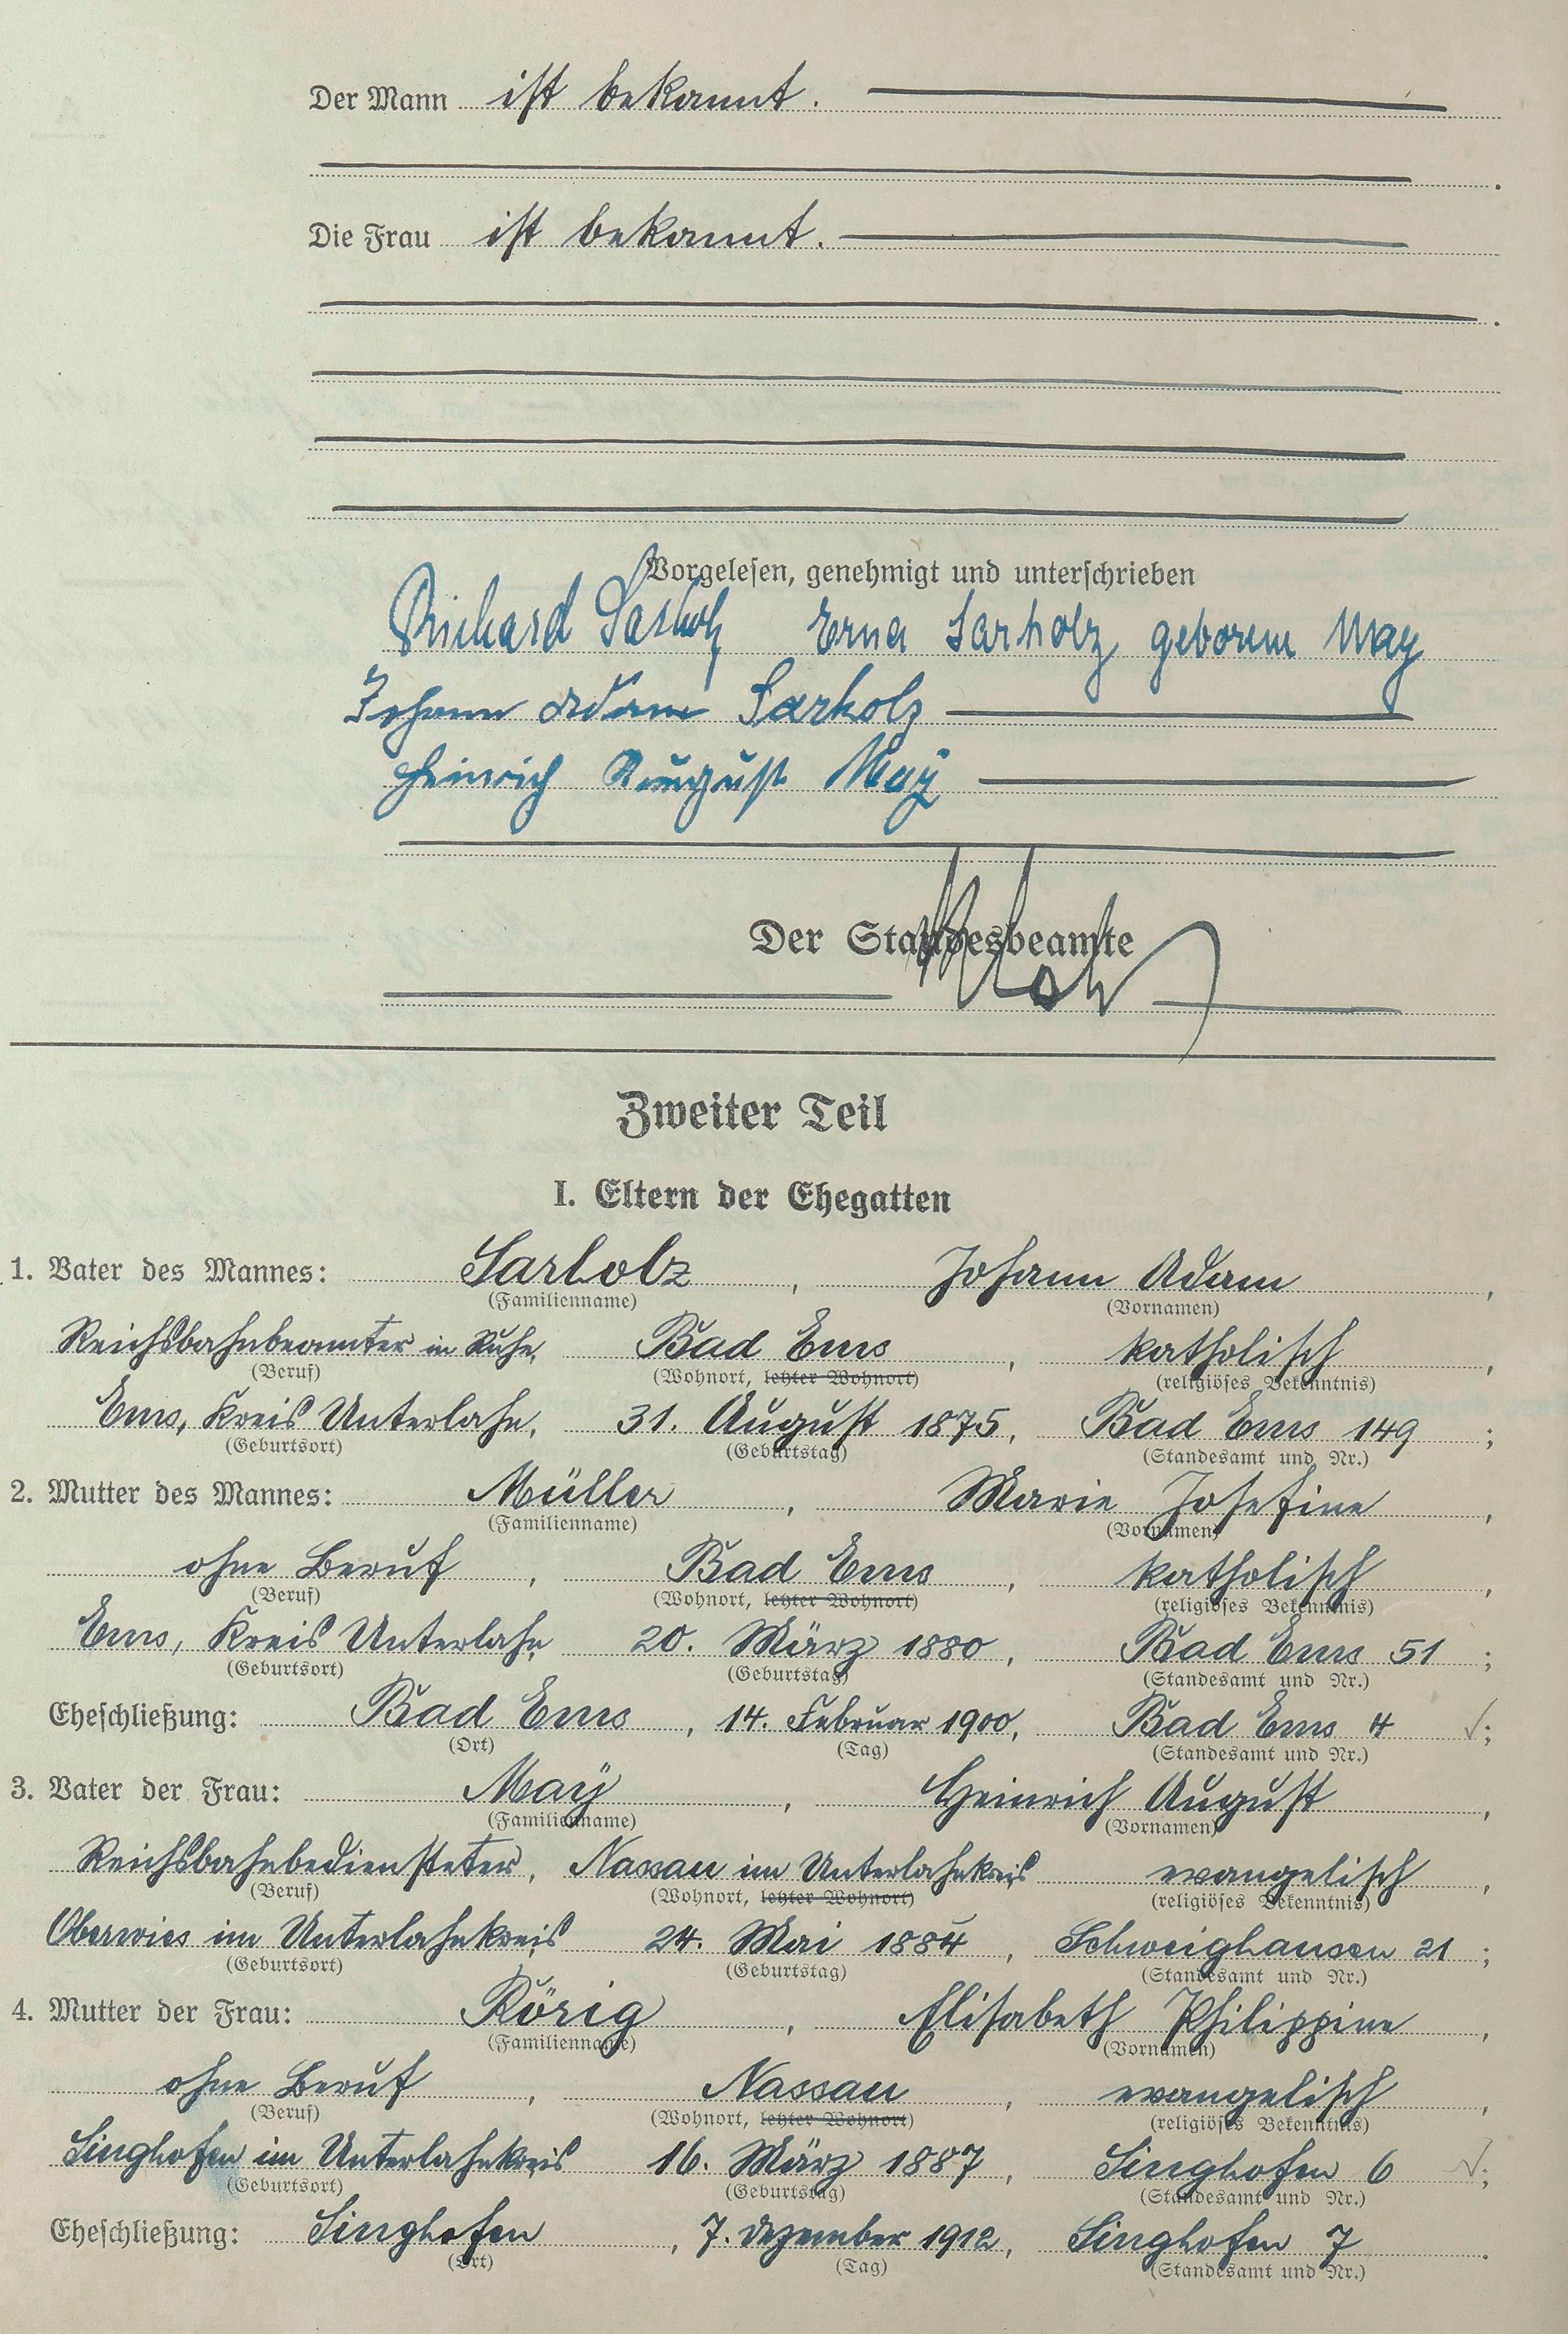 Der Mann ist bekannt.
Die Frau ist bekannt.
Vorgelesen, genehmigt und unterschrieben
Richard Sarholz Erna Sarholz geborene May
Johann Adam Sarholz
Heinrich August Maÿ
Der Standesbeamte
Zweiter Teil
I. Eltern der Ehegatten
1. Vater des Mannes: Sarholz, Johann Adam,
(Familienname) (Vornamen)
Reichsbahnbeamter in Ruhe, Bad Ems, katholisch,
(Beruf) (Wohnort, letzter Wohnort) (religiöses Bekenntnis)
Ems, Kreis Unterlahn, 31. August 1875, Bad Ems 149;
(Geburtsort) (Geburtstag) (Standesamt und Nr.)
2. Mutter des Mannes: Müller, Marie Josefine,
(Familienname) (Vornamen)
ohne Beruf, Bad Ems, katholisch,
(Beruf) (Wohnort, letzter Wohnort) (religiöses Bekenntnis)
Ems, Kreis Unterlahn, 20. März 1880, Bad Ems 51;
(Geburtsort) (Geburtstag) (Standesamt und Nr.)
Eheschließung: Bad Ems, 14. Februar 1900, Bad Ems 4 ✓;
(Ort) (Tag) (Standesamt und Nr.)
3. Vater der Frau: Maÿ, Heinrich August,
(Familienname) (Vornamen)
Reichsbahnbediensteter, Nassau im Unterlahnkreis, evangelisch,
(Beruf) (Wohnort, letzter Wohnort) (religiöses Bekenntnis)
Oberwies im Unterlahnkreis, 24. Mai 1884, Schweighausen 21;
(Geburtsort) (Geburtstag) (Standesamt und Nr.)
4. Mutter der Frau: Rörig, Elisabeth Philippine,
(Familienname) (Vornamen)
ohne Beruf, Nassau, evangelisch,
(Beruf) (Wohnort, letzter Wohnort) (religiöses Bekenntnis)
Singhofen im Unterlahnkreis, 16. März 1887, Singhofen 6 ✓;
(Geburtsort) (Geburtstag) (Standesamt und Nr.)
Eheschließung: Singhofen, 7. Dezember 1912, Singhofen 7.
(Ort) (Tag) (Standesamt und Nr.)